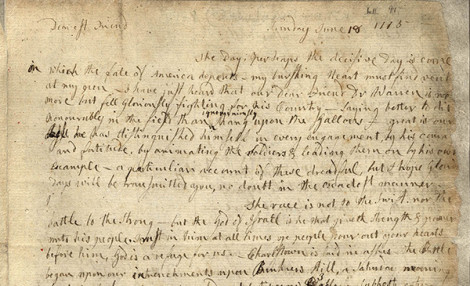 Dearest Friend Sunday June 18 1775
The Day; perhaps the decisive Day is come
on which the fate of America depends. My bursting Heart must find vent
at my pen. I have just heard that our dear Friend Dr Warren is no
more but fell gloriously fighting for his Country — saying better to die
honourably in the field than ignominiously hang upon the Gallows. Great is our
Loss. He has distinguished himself in every engagement, by his courage
and fortitude, by animating the Soldiers & leading them on by his own
example — a particuliar account of these dreadful, but I hope Glorious
Days will be transmitted you, no doubt in the exactest manner.
The race is not to the swift, nor the
battle to the Strong — but the God of Israel is he that giveth strength & power
unto his people. Trust in him at all times ye people pour out your hearts
before him, God is a refuge for us. — Charlstown is laid in ashes. The Battle
began upon our intrenchments upon Bunkers Hill, a Saturday morning